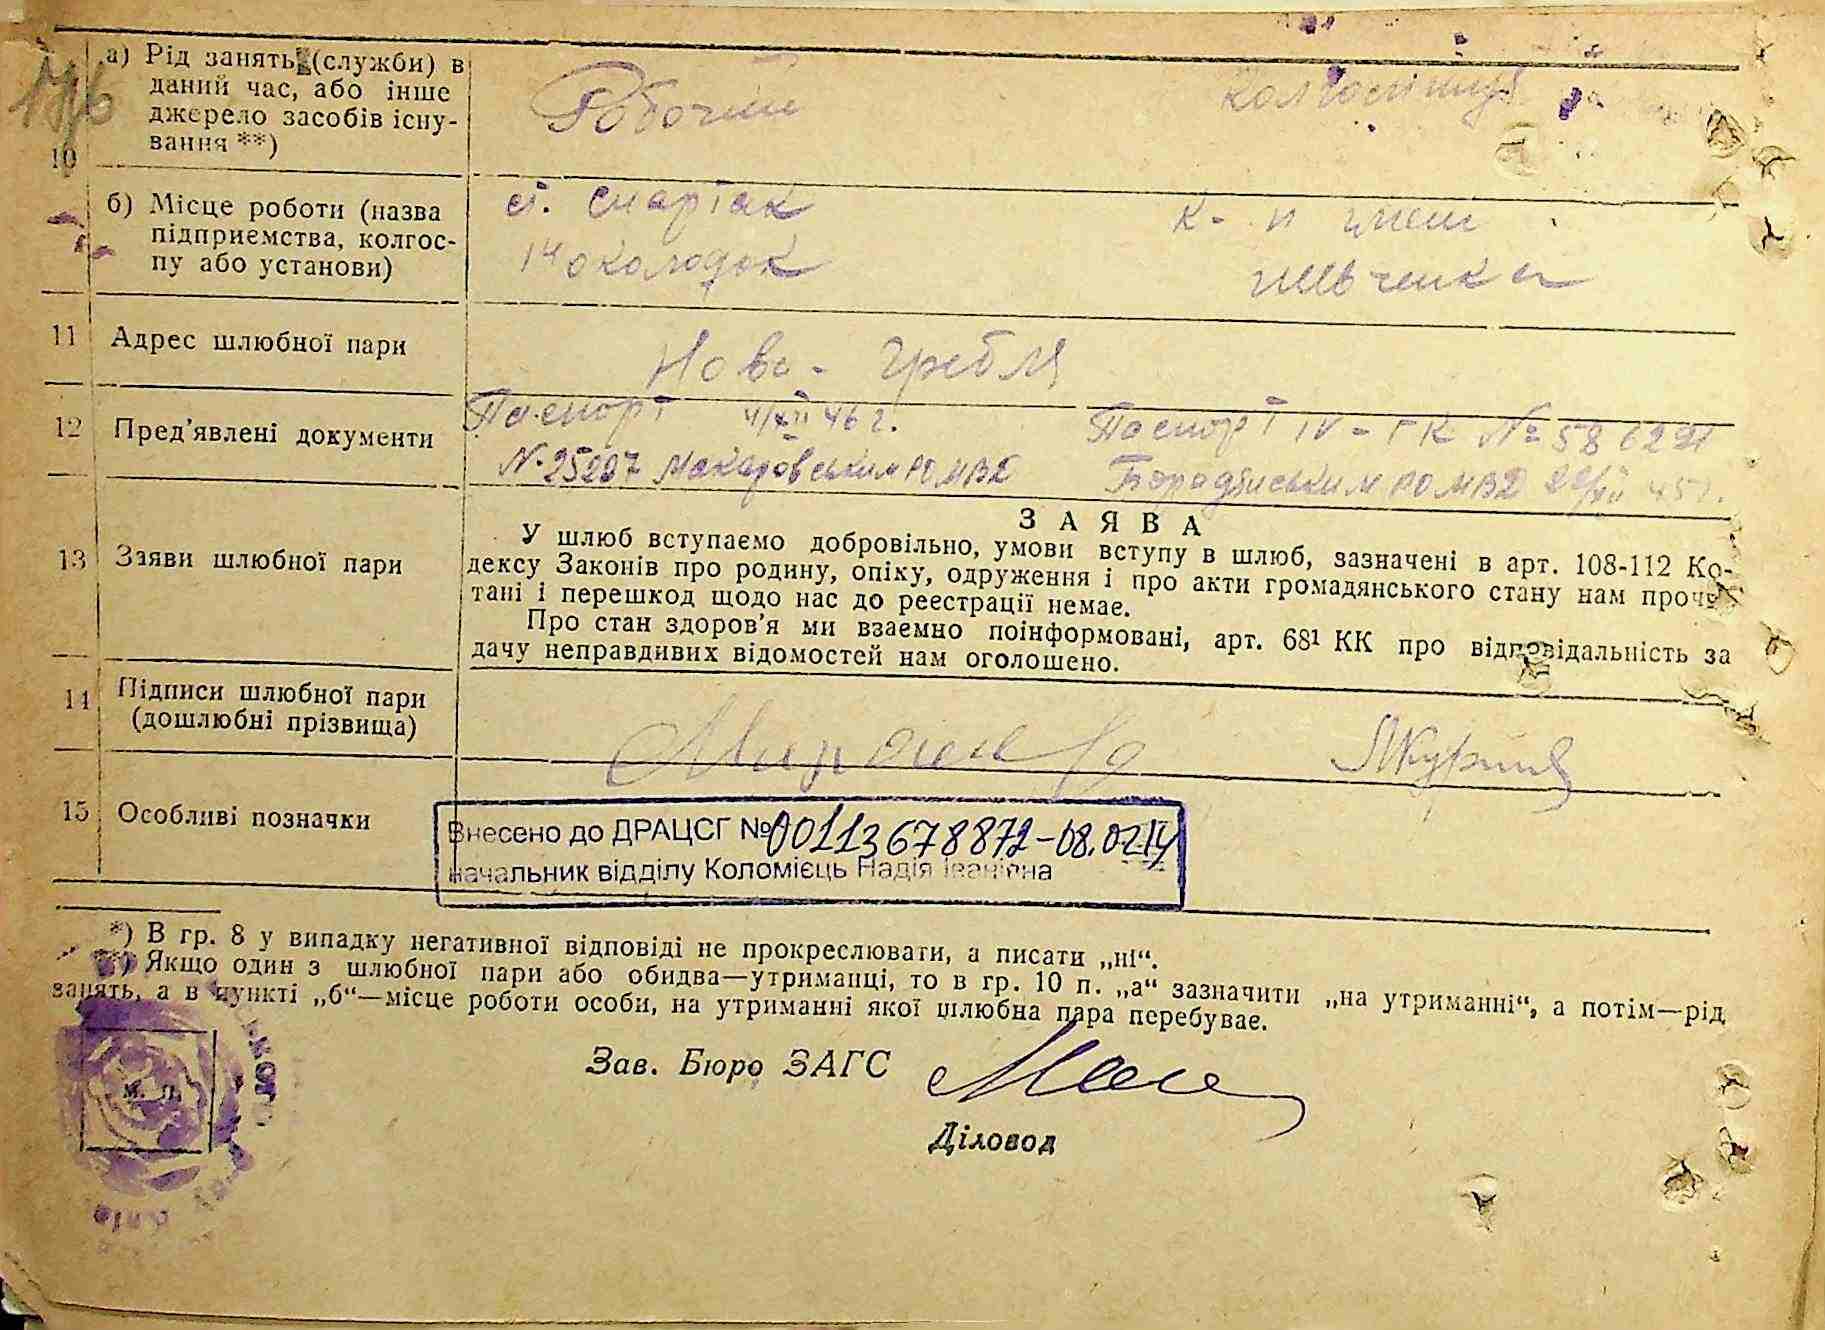 а) Рід занять (службы) в
даний час, або інше
джерело засобів існу-
вання **)
10
Робочий
колгоспниця
б) Місце роботи (назва
підприємства, колгос-
пу або установи)
ст. Спартак
14 околодок
к-п імені
Шевченка
11 Адрес шлюбної пари
Нова-Гребля
12 Пред'явлені документи
Паспорт 46 г.
№ 25207 Макаровським РОМВД
Паспорт IV-ГК № 586291
Бородянським РОМВД 45 г.
13 Заяви шлюбної пари
ЗАЯВА
У шлюб вступаємо добровільно, умови вступу в шлюб, зазначені в арт. 108-112 Ко-
дексу Законів про родину, опіку, одруження і про акти громадянського стану нам прочи-
тані і перешкод щодо нас до реєстрації немає.
Про стан здоров'я ми взаємно поінформовані, арт. 68¹ КК про відповідальність за
дачу неправдивих відомостей нам оголошено.
14 Підписи шлюбної пари
(дошлюбні прізвища)
15 Особливі позначки
Внесено до ДРАЦСГ №00113678872-08.02.14
начальник відділу Коломієць Надія Іванівна
*) В гр. 8 у випадку негативної відповіді не прокреслювати, а писати „ні“.
**) Якщо один з шлюбної пари або обидва—утриманці, то в гр. 10 п. „а“ зазначити „на утриманні“, а потім—рід
занять, а в пункті „б“—місце роботи особи, на утриманні якої шлюбна пара перебуває.
М. П.
Зав. Бюро ЗАГС
Діловод